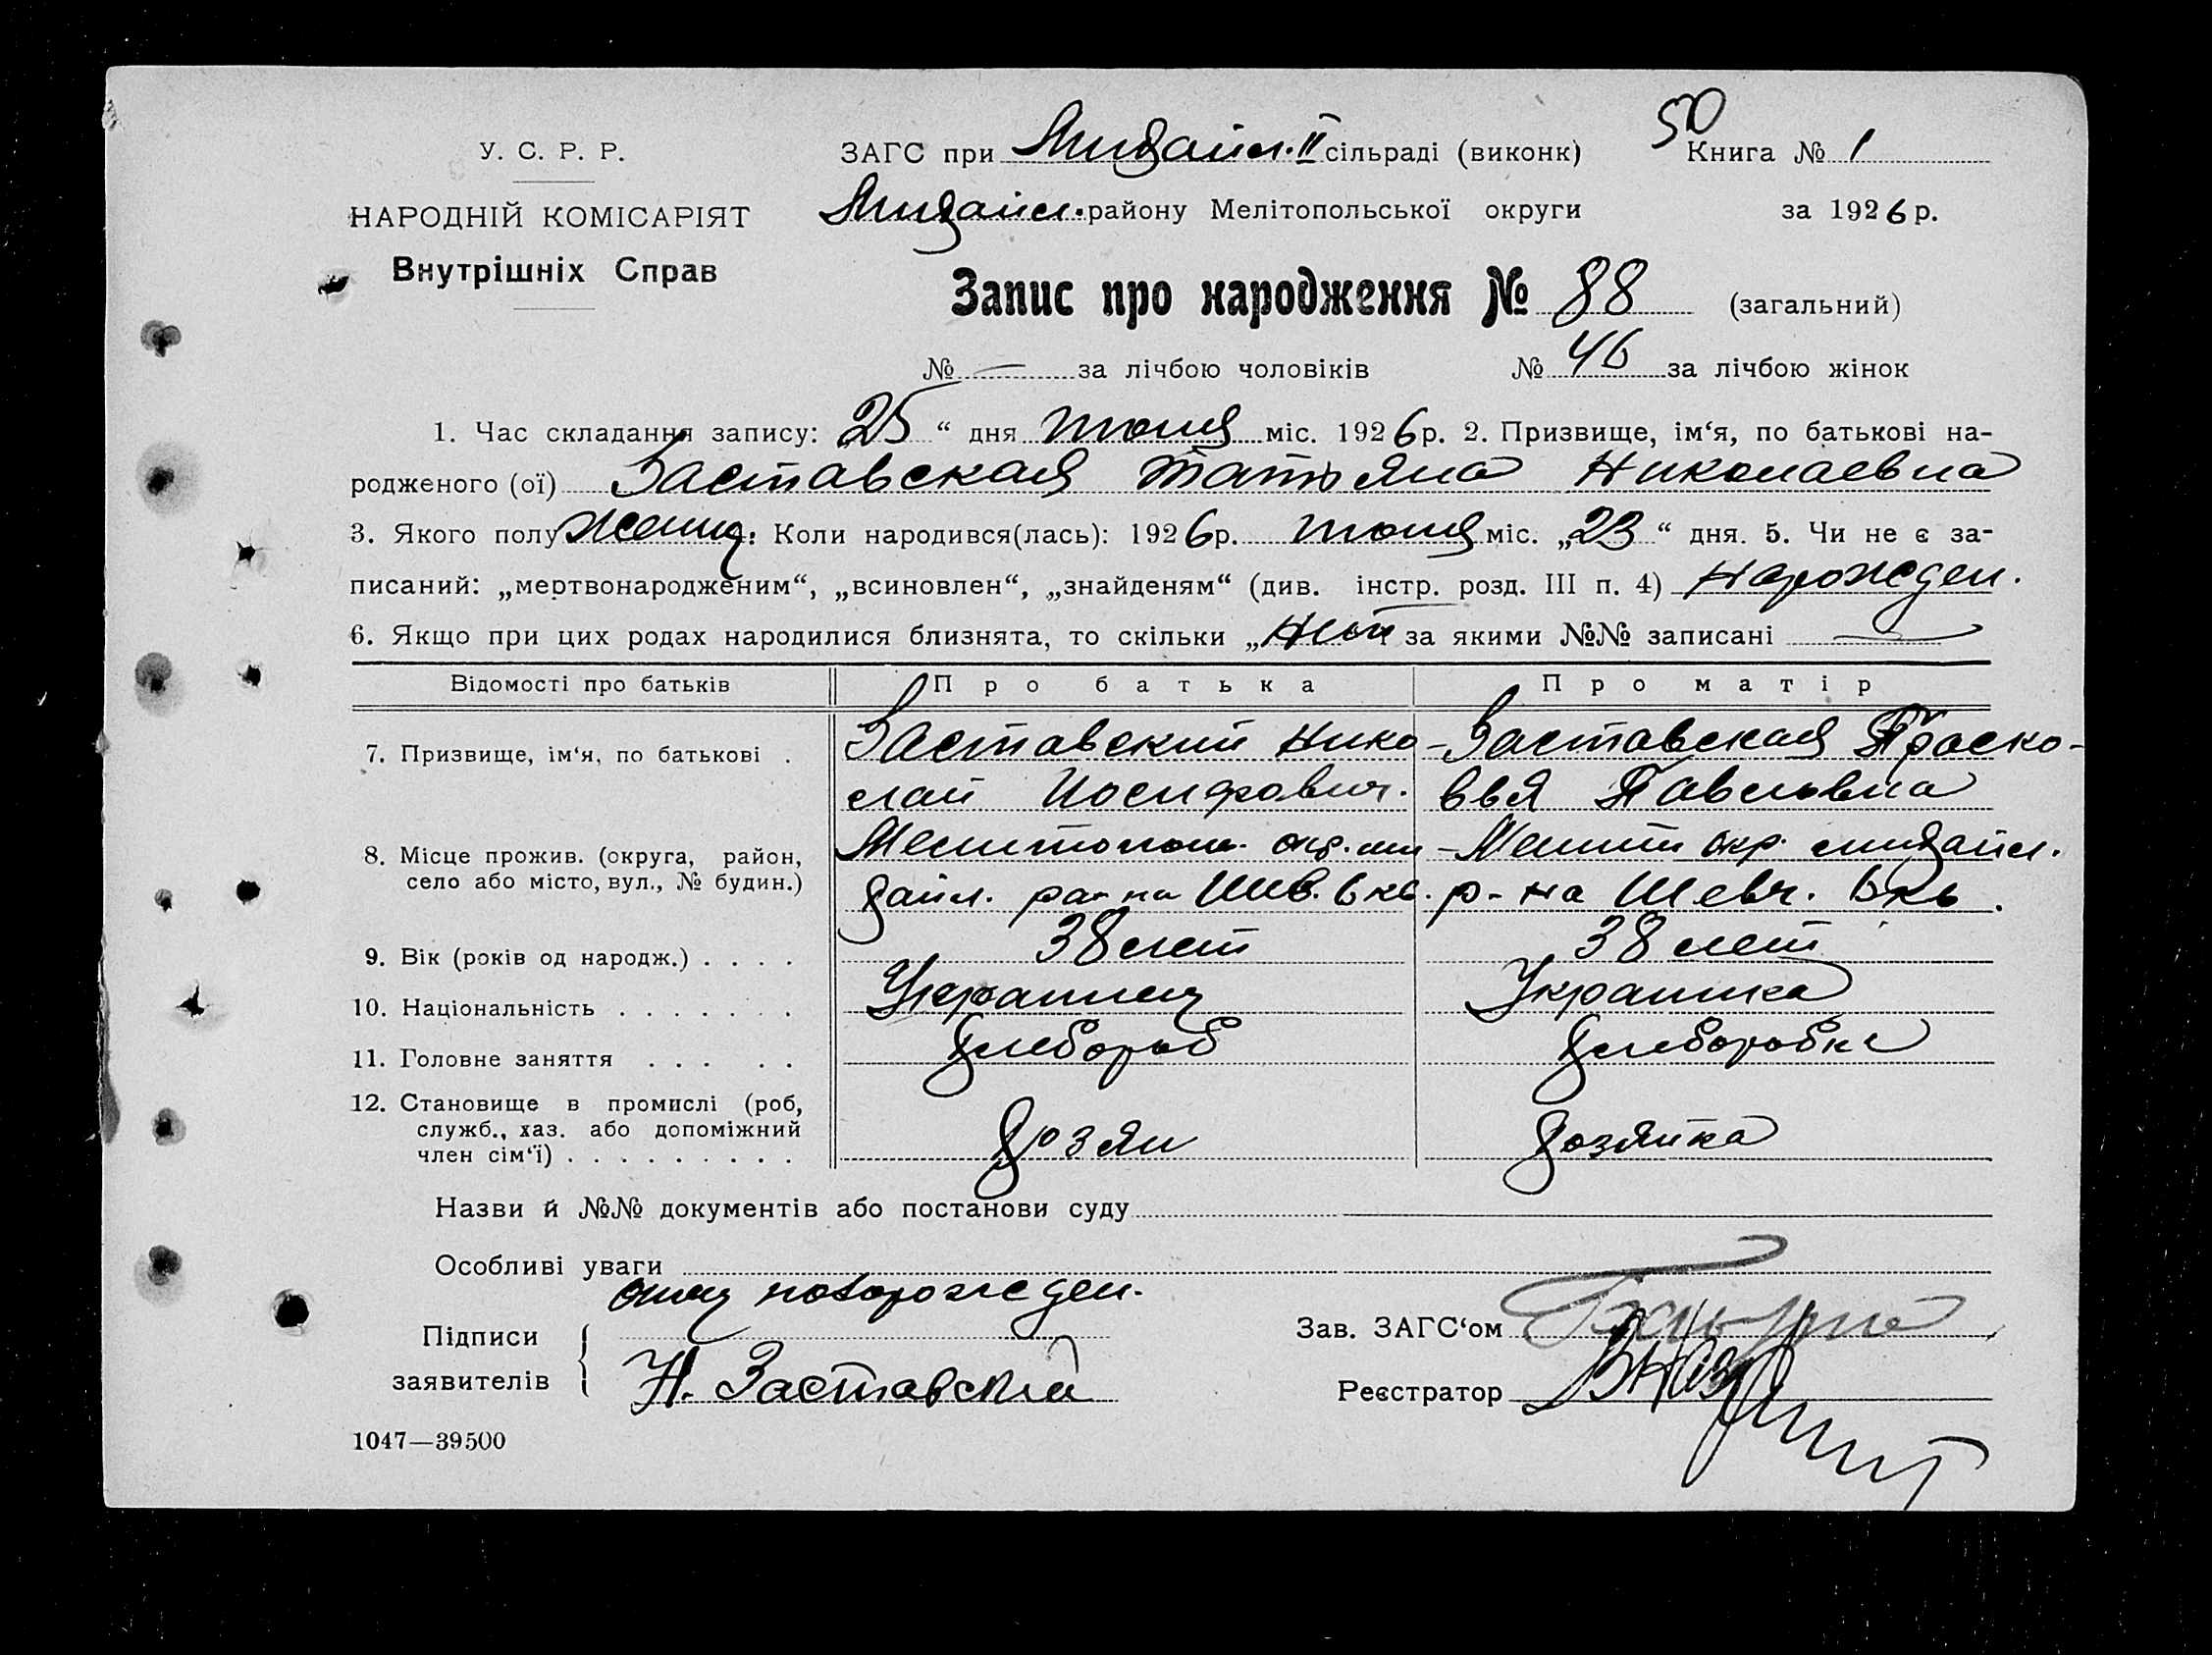 50
У. С. Р. Р.
ЗАГС при Михайл. II сільраді (виконк)
Книга № 1
НАРОДНІЙ КОМІСАРІЯТ
Михайл. району Мелітопольської округи
за 1926 р.
Внутрішніх Справ
Запис про народження № 88 (загальний)
№ — за лічбою чоловіків № 46 за лічбою жінок
1. Час складання запису: 25 “ дня июня міс. 1926 р. 2. Призвище, ім‘я, по батькові на-
родженого (ої) Заставская Татьяна Николаевна
3. Якого полу женщ. Коли народився(лась): 1926 р. июня міс. „23“ дня. 5. Чи не є за-
писаний: „мертвонародженим“, „всиновлен“, „знайденям“ (див. інстр. розд. III п. 4) Нарожден.
6. Якщо при цих родах народилися близнята, то скільки „ нет за якими №№ записані —
Відомості про батьків
Про батька
Про матір
7. Призвище, ім‘я, по батькові .
Заставский Нико-
лай Иосифович.
Заставская Праско-
вья Павловна
8. Місце прожив. (округа, район,
село або місто, вул., № будин.)
Мелитополь. окр. ми-
хайл. ра-на Шев. 6 кв.
Мелит окр. михайл.
р-на Шевч. 6 кв.
9. Вік (років од народж.) . . . .
38 лет
38 лет
10. Національність . . . . . . .
Украинец
Украинка
11. Головне заняття . . . . .
Хлебороб
Хлеборобка
12. Становище в промислі (роб,
служб., хаз. або допоміжний
член сім‘ї) . . . . . . . . .
хозяин
хозяйка
Назви й №№ документів або постанови суду
Особливі уваги
отец новорожден.
Підписи
заявителів
Н. Заставский
Зав. ЗАГС‘ом
Реєстратор
1047—39500